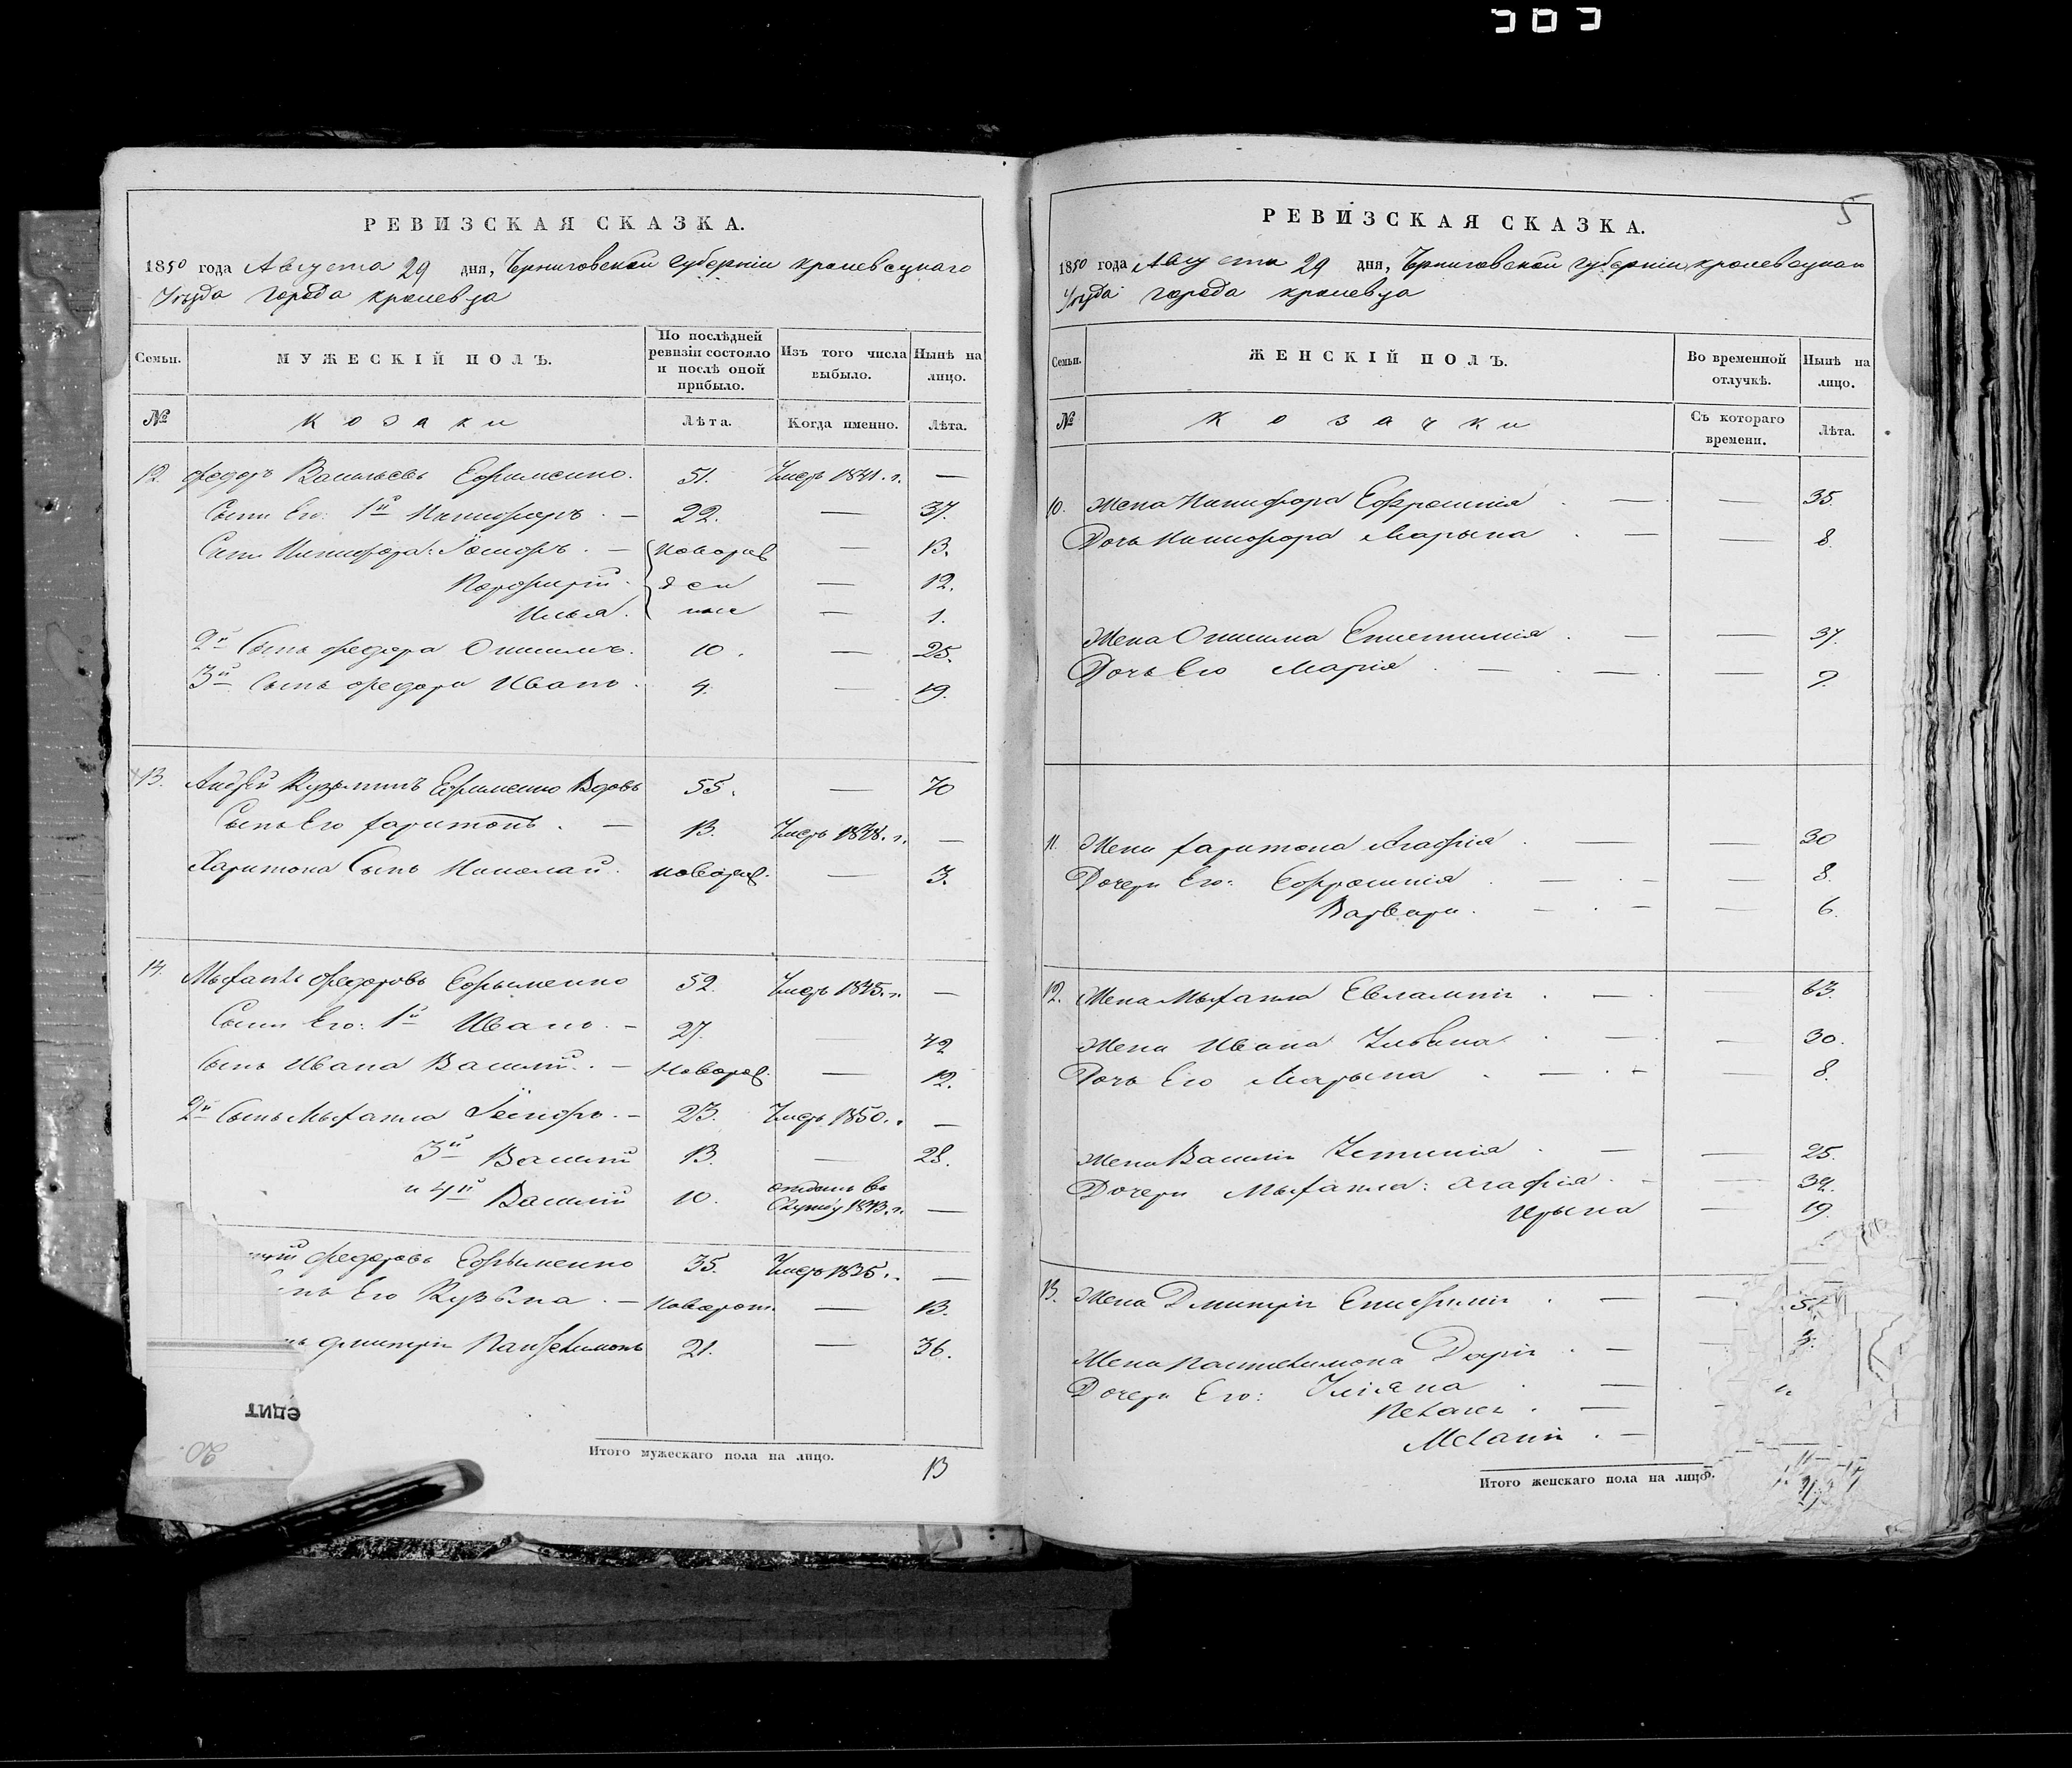 303
РЕВИЗСКАЯ СКАЗКА.
1850 года Августа 29 дня, Черниговской Губерніи кролевецкаго
Уезда города кролевца
Семьи.
МУЖЕСКІЙ ПОЛЪ.
По послѣдней ревизіи состояло и послѣ оной прибыло.
Изъ того числа выбыло.
Нынѣ на лицо.
№
козаки
Лѣта.
Когда именно.
Лѣта.
12. Федоръ Васильевъ Ефименко. 51. Умеръ 1841. г. —
Сыны Его: 1й Никифоръ. — 22. — 37.
Сыны Никифора: Іосифъ. — новорож — 13.
Порфирій. де н — 12.
Илья. ные — 1.
2й Сынъ федора Онисимъ. 10. — 25.
3й Сынъ федора Иванъ. 4. — 19.
13. Андрей Кузьминъ Ефименко Вдовъ 55. — 70
Сынъ Его Харитонъ. — 13. Умеръ 1848. г. —
Харитона Сынъ Николай. новорож. — 3.
14. Михаилъ Федоровъ Ефименко 52. Умеръ 1845. г. —
Сыны Его: 1й Иванъ. — 27. — 42
Сынъ Ивана Василій. — Новорож. — 12.
2й Сынъ Михаила Іосифъ. — 23. Умеръ 1850. г. —
3й Василій 13. — 28.
и 4й Василій 10. отданъ въ
1843. г. —
Федоровъ Ефименко 35. Умеръ 1835. г. —
Его Кузьма. — Новорож. — 13.
Дмитрія Пантелимонъ 21. — 36.
едит
20.
Итого мужескаго пола на лицо. 13
5
РЕВИЗСКАЯ СКАЗКА.
1850 года Августа 29 дня, Черниговской Губерніи кролевецкаго
Уезда города кролевца
Семьи.
ЖЕНСКІЙ ПОЛЪ.
Во временной отлучкѣ.
Нынѣ на лицо.
№
козачки
Съ котораго времени.
Лѣта.
10. Жена Никифора Ефросинія. — — 35.
Дочь Никифора Марына. — — 8.
Жена Онисима Епистимія. — — 37.
Дочь Его Марія. — — —
11. Жена Харитона Агафія. — — 30
Дочери Его: Ефросинія. — — 8.
Варвара. — — 6.
12. Жена Михаила Евлампія. — — 63.
Жена Ивана Ульяна. — — 30.
Дочь Его Марына. — — 8.
Жена Василія Устинія. — — 25.
Дочери Михаила: Агафія. — — 32.
Ирына — 19.
13. Жена Дмитрія Епифанія. — —
Жена Пантелимона Дарія. — —
Дочери Его: Уліяна. —
Пелагея. —
Меланія. —
Итого женскаго пола на лицо.